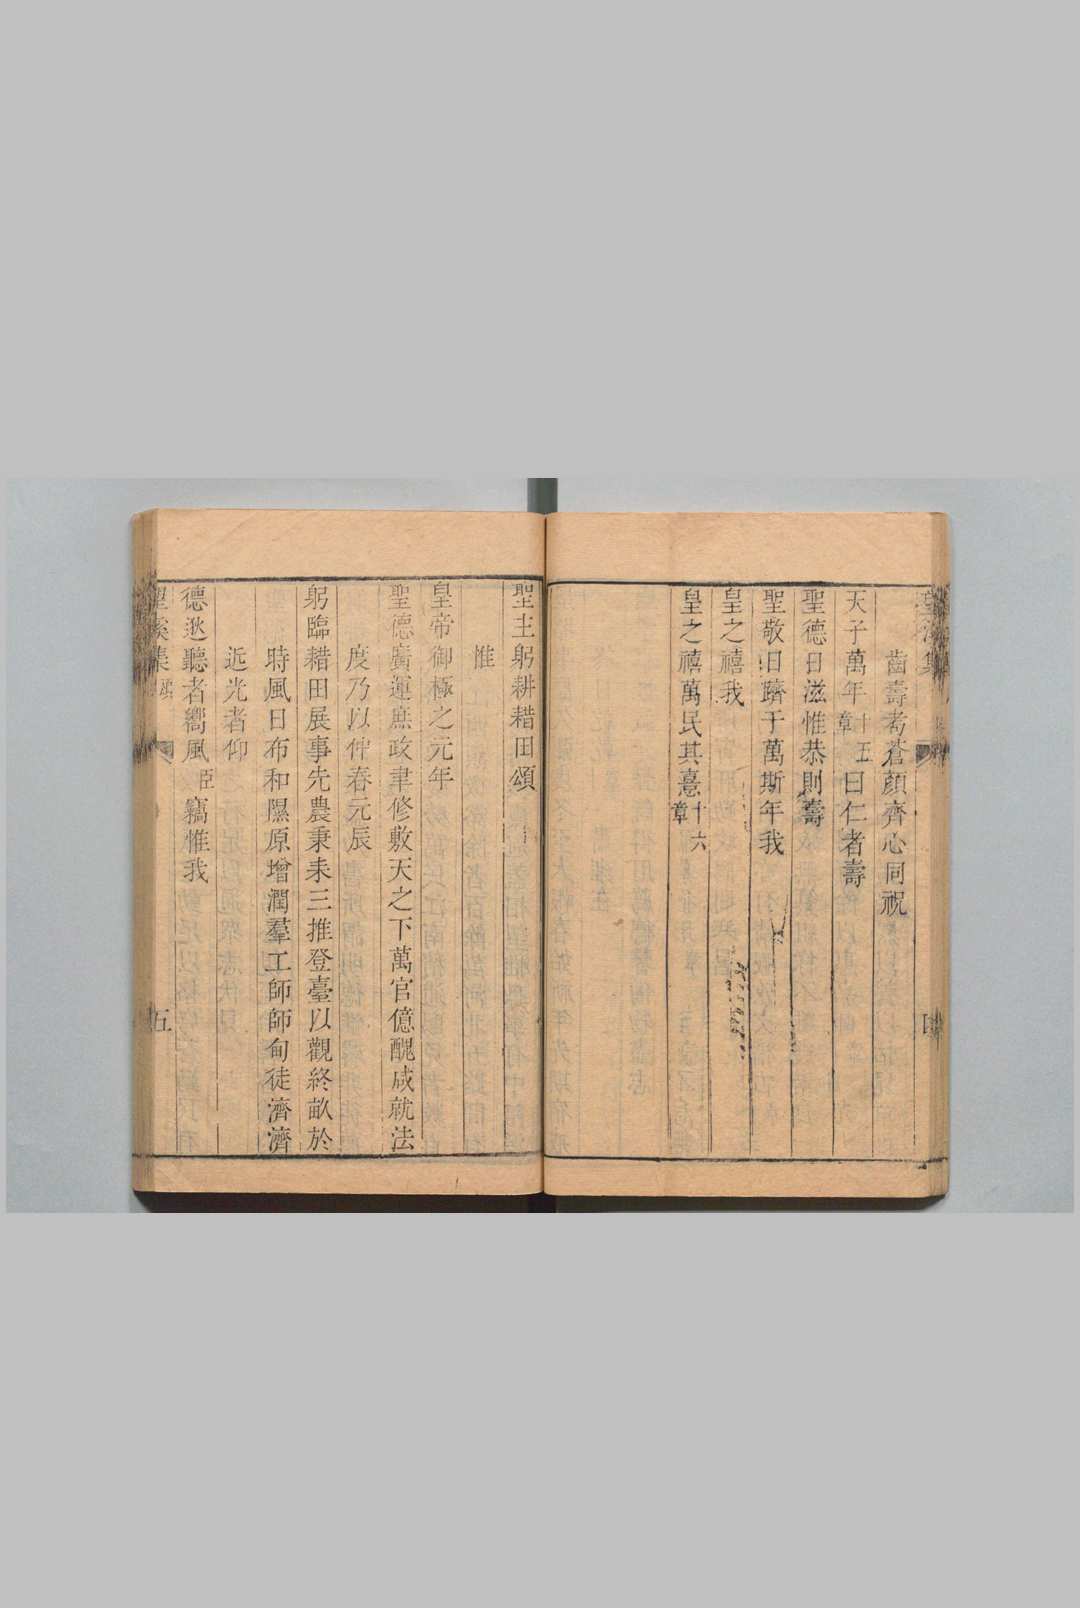 齒壽考蒼顏齊心同祝
天子萬年十五章曰仁者壽
聖德日滋惟恭則壽
聖敬日躋于萬斯年我
皇之禧我
皇之禧萬民其憙十六章
聖主躬耕耤田頌
惟
皇帝御極之元年
聖德廣運庶政聿修敷天之下萬官億醜咸就法
度乃以仲春元辰
躬臨耤田展事先農秉耒三推登臺以觀終畝於
時風日布和隰原增潤羣工師師甸徒濟濟
近光者仰
德逖聽者嚮風臣竊惟我
望溪集
五